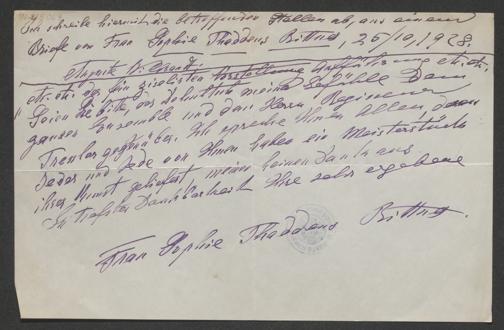 Ich schreibe hiermit die betreffenden Stellen ab, aus einem
Briefe von Frau Sophie Thaddäus Bittner, 25/10, 1928.
Auguste
für gestrigen Vorstellung Aufführung
"Seien Sie bitte der Dolmetsch meiner Gefühle dem
ganzen Ensemble und dem Herrn Regisseur
Trenlor gegenüber. Ich spreche Ihnen Allen, denn
Jeder und Jede von Ihnen haben ein Meisterstück
ihrer Kunst geliefert, meinen Dank aus
In tiefster Dankbarkeit Ihre sehr ergebene
Frau Sophie Thaddäus Bittner.